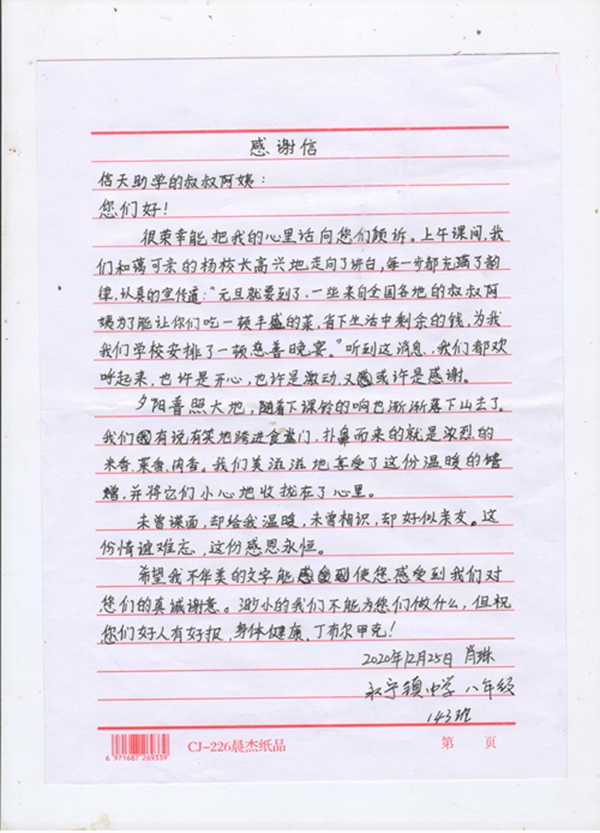 感谢信
信天助学的叔叔阿姨：
您们好！
很荣幸能把我的心里话向您们倾诉。上午课间，我
们和蔼可亲的杨校长高兴地走向了讲台，每一步都充满了韵
律，认真的宣传道："元旦就要到了，一些来自全国各地的叔叔阿
姨为了能让你们吃一顿丰盛的菜，省下生活中剩余的钱，为我
我们学校安排了一顿慈善晚宴。"听到这消息，我们都欢
呼起来，也许是开心，也许是激动，又或许是感谢。
夕阳普照大地，随着下课铃的响也渐渐落下山去了。
我们有说有笑地跨进食堂门，扑鼻而来的就是浓烈的
米香、菜香、肉香。我们美滋滋地享受了这份温暖的馈
赠，并将它们小心地收拢在了心里。
未曾谋面，却给我温暖，未曾相识，却好似亲友。这
份情谊难忘，这份感恩永恒。
希望我不华美的文字能使您感受到我们对
您们的真诚谢意。渺小的我们不能为您们做什么，但祝
您们好人有好报，身体健康，丁布尔甲克！
2020年12月25日 肖琳
永宁镇中学 八年级
143班
CJ-226晨杰纸品
第 页
6 971687 269339